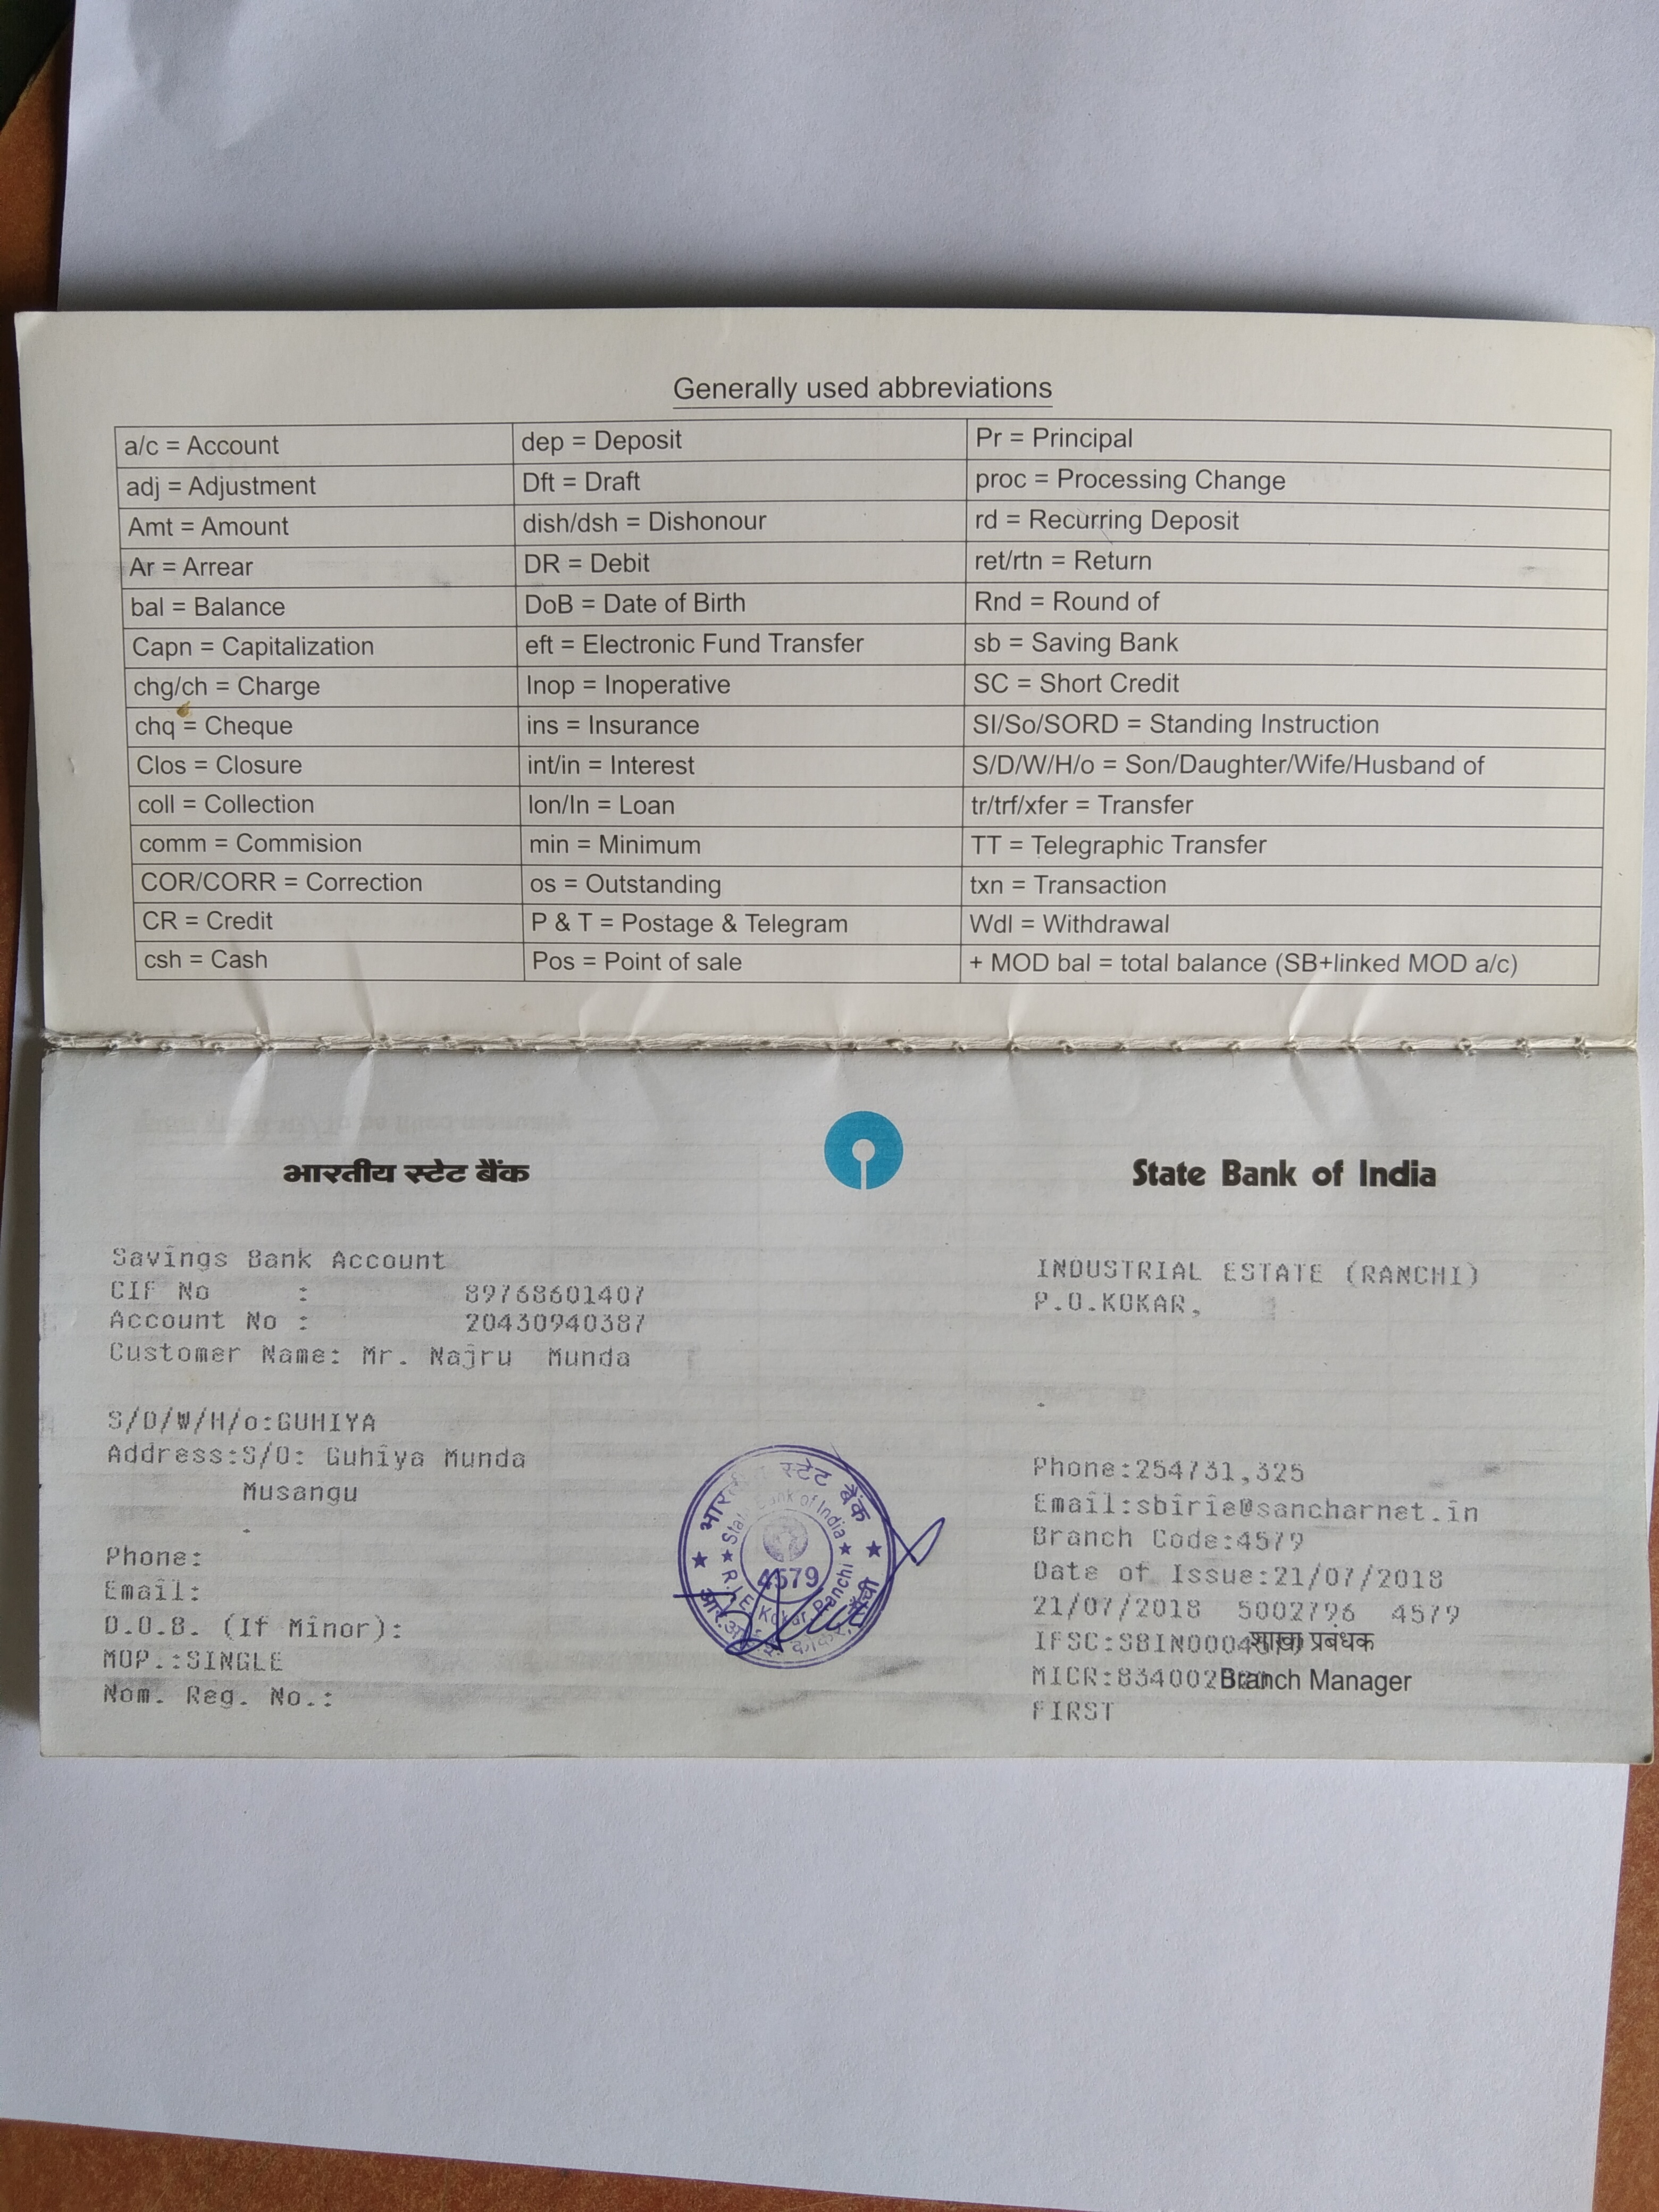 Generally used abbreviations
a/c = Account dep = Deposit Pr = Principal
adj = Adjustment Dft = Draft proc = Processing Change
Amt = Amount dish/dsh = Dishonour rd = Recurring Deposit
Ar = Arrear DR = Debit ret/rtn = Return
bal = Balance DoB = Date of Birth Rnd = Round of
Capn = Capitalization eft = Electronic Fund Transfer sb = Saving Bank
chg/ch = Charge Inop = Inoperative SC = Short Credit
chq = Cheque ins = Insurance SI/So/SORD = Standing Instruction
Clos = Closure int/in = Interest S/D/W/H/o = Son/Daughter/Wife/Husband of
coll = Collection lon/ln = Loan tr/trf/xfer = Transfer
comm = Commision min = Minimum TT = Telegraphic Transfer
COR/CORR = Correction os = Outstanding txn = Transaction
CR = Credit P & T = Postage & Telegram Wdl = Withdrawal
csh = Cash Pos = Point of sale + MOD bal = total balance (SB+linked MOD a/c)
भारतीय स्टेट बैंक State Bank of India
Savings Bank Account
CIF No : 89768601407
Account No : 20430940387
Customer Name: Mr. Najru Munda
S/D/W/H/o:GUHIYA
Address:S/O: Guhiya Munda
Musangu
Phone:
Email:
D.O.B. (If Minor):
MOP.:SINGLE
Nom. Reg. No.:
स्टेट बैंक
Bank of India
4579
R.I.E. Kokar, Ranchi
INDUSTRIAL ESTATE (RANCHI)
P.O.KOKAR,
Phone:254731,325
Email:sbirie@sancharnet.in
Branch Code:4579
Date of Issue:21/07/2018
21/07/2018 5002796 4579
IFSC: शाखा प्रबंधक
MICR: Branch Manager
FIRST